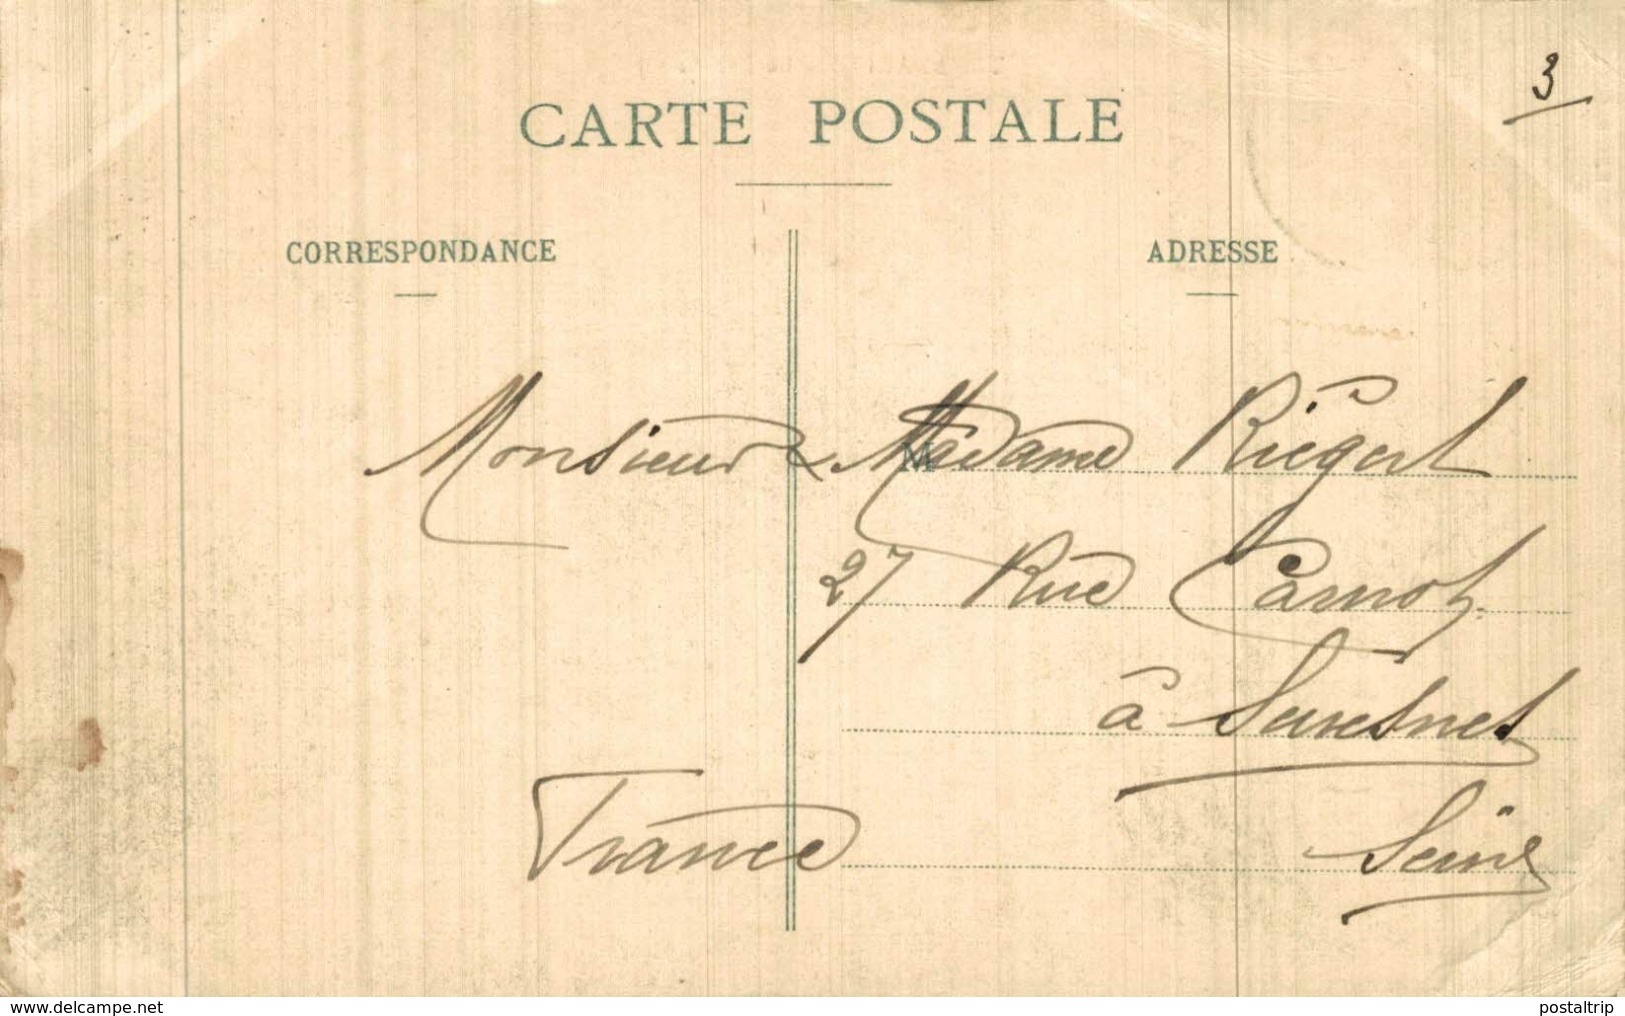 3
CARTE POSTALE
CORRESPONDANCE
ADRESSE
M
Monsieur & Madame Riégert
27 Rue Carnot
à Suresnes
France
Seine
www.delcampe.net
postaltrip